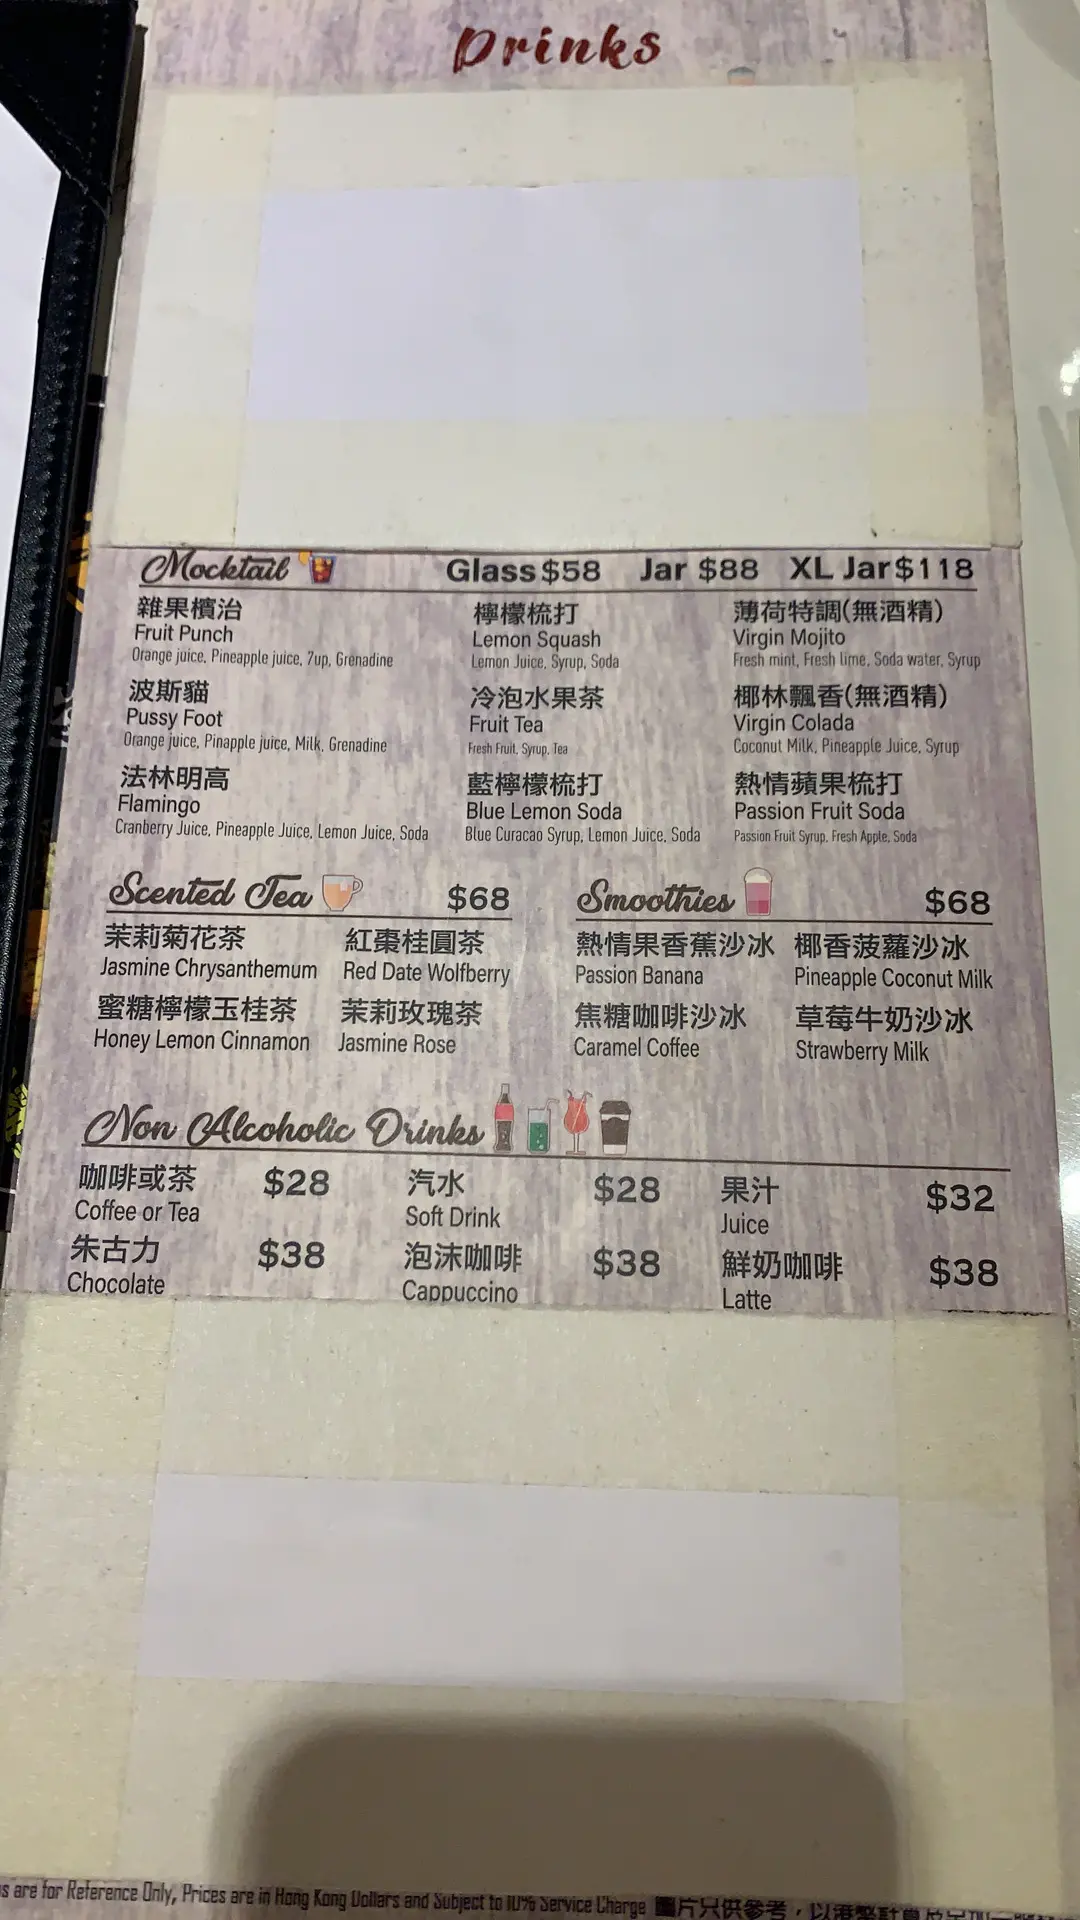 Drinks
Mocktail Glass $58 Jar $88 XL Jar $118
雜果檳治 檸檬梳打 薄荷特調(無酒精)
Fruit Punch Lemon Squash Virgin Mojito
Orange juice, Pineapple juice, 7up, Grenadine Lemon Juice, Syrup, Soda Fresh mint, Fresh lime, Soda water, Syrup
波斯貓 冷泡水果茶 椰林飄香(無酒精)
Pussy Foot Fruit Tea Virgin Colada
Orange juice, Pinapple juice, Milk, Grenadine Fresh Fruit, Syrup, Tea Coconut Milk, Pineapple Juice, Syrup
法林明高 藍檸檬梳打 熱情蘋果梳打
Flamingo Blue Lemon Soda Passion Fruit Soda
Cranberry Juice, Pineapple Juice, Lemon Juice, Soda Blue Curacao Syrup, Lemon Juice, Soda Passion Fruit Syrup, Fresh Apple, Soda
Scented Tea $68 Smoothies $68
茉莉菊花茶 紅棗桂圓茶 熱情果香蕉沙冰 椰香菠蘿沙冰
Jasmine Chrysanthemum Red Date Wolfberry Passion Banana Pineapple Coconut Milk
蜜糖檸檬玉桂茶 茉莉玫瑰茶 焦糖咖啡沙冰 草莓牛奶沙冰
Honey Lemon Cinnamon Jasmine Rose Caramel Coffee Strawberry Milk
Non Alcoholic Drinks
咖啡或茶 $28 汽水 $28 果汁 $32
Coffee or Tea Soft Drink Juice
朱古力 $38 泡沫咖啡 $38 鮮奶咖啡 $38
Chocolate Cappuccino Latte
are for Reference Only, Prices are in Hong Kong Dollars and Subject to 10% Service Charge 圖片只供參考，以港幣計算及